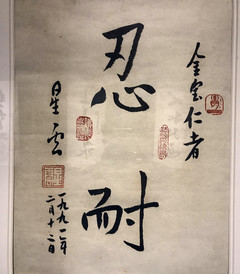 金宝仁者
忍耐
星雲
一九九一年
二月十二日